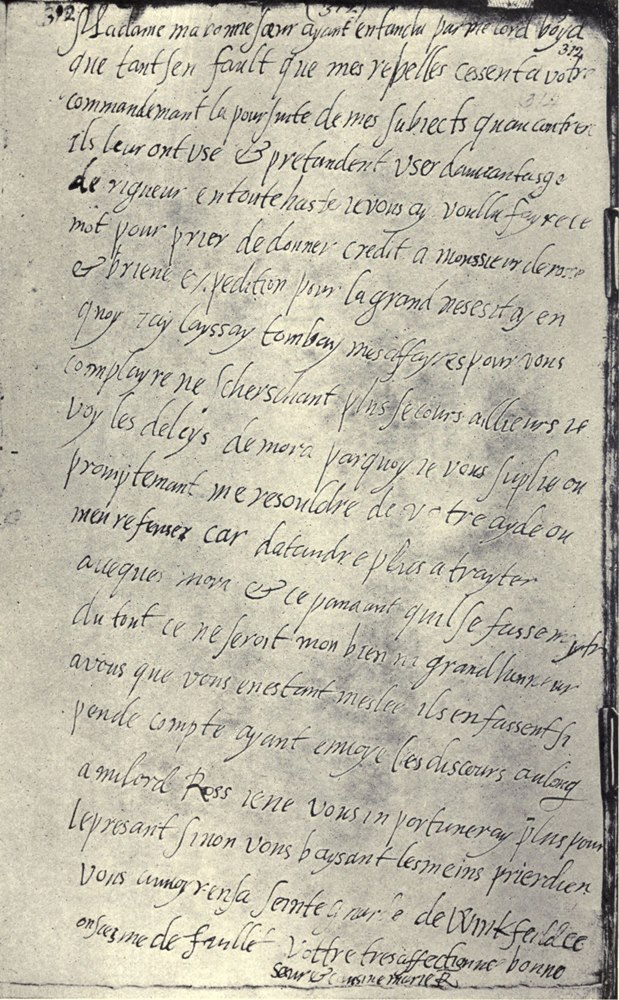 312
Madame ma bonne sœur ayant entandu par mé lord boyd
312
que tant sen fault que mes repelles cessent a votre
commandemant la poursuite de mes subiects quau contrere
ils leur ont usé & pretandent user dauuantasge
de rigueur en toute haste ie vous ay voullu fayre ce
mot pour prier de donner credit a monssieur de
& brieue expedition pour la grand nesesitay en
quoy iay layssay tombay mes affayres pour vous
complayre ne scherschant plus secours allieurs ie
voy les deleys de mora parquoy ie vous suplie ou
promptemant me resouldre de votre ayde ou
men refeuser car datandre plus a trayter
auesques mora & ce pandant quil se fasse
du tout ce ne seroit mon bien ni grand hunneur
a vous que vous en estant meslée ils en fassent si
peu de compte ayant enuoyé les discours au long
a milord Ross ie ne vous inportuneray plus pour
le presant sinon vous baysant les meins prier dieu
vous auoyr en sa seinte garde de Winkfeild ce
onsiesme de feullet
Vottre tres affectionnee bonne
sœur & cousine marie R